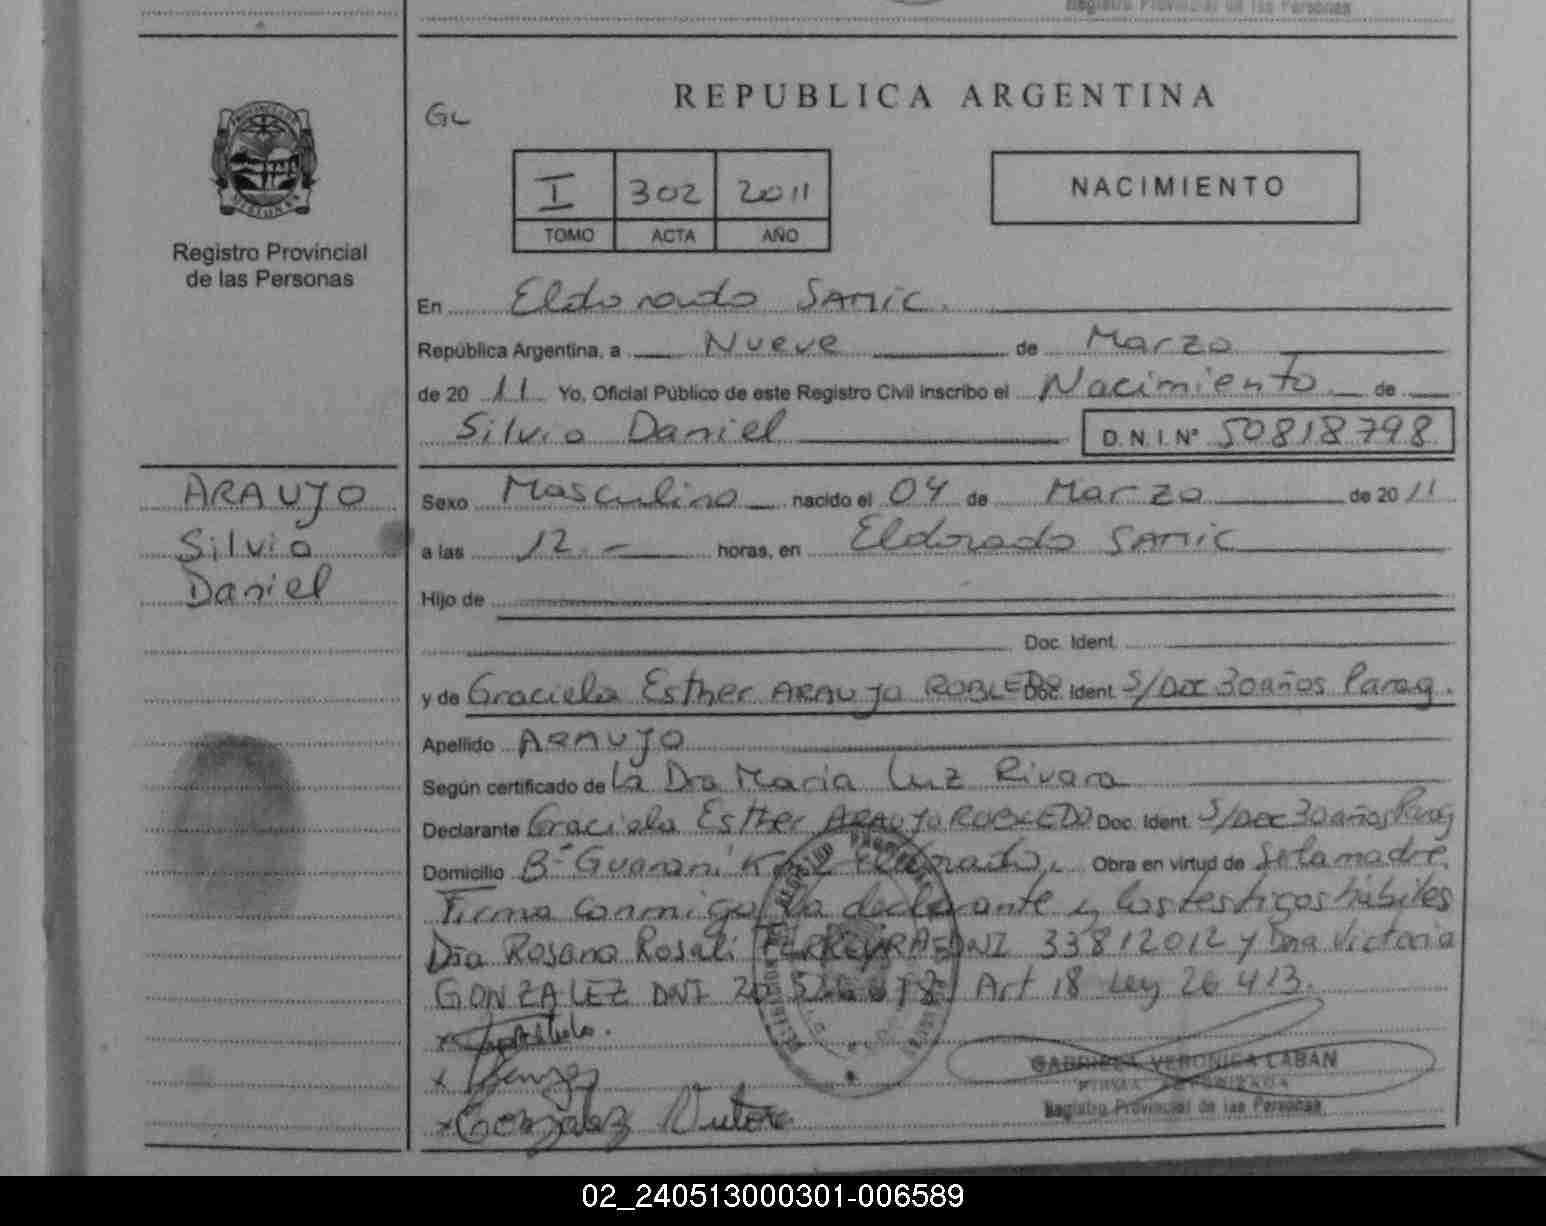 Registro Provincial de las Personas
REPUBLICA ARGENTINA
GL
I 302 2011
TOMO ACTA AÑO
NACIMIENTO
Registro Provincial
de las Personas
En Eldorado SAMIC.
República Argentina, a Nueve de Marzo
de 2011 Yo, Oficial Público de este Registro Civil inscribo el Nacimiento de
Silvio Daniel D.N.I.Nº 50818798
ARAUJO
Silvio
Daniel
Sexo Masculino nacido el 04 de Marzo de 2011
a las 12.- horas, en Eldorado SAMIC
Hijo de
Doc. Ident.
y de Graciela Esther ARAUJO ROBLEDO Doc. Ident. S/Doc 30 años Parag.
Apellido ARAUJO
Según certificado de La Dra Maria Luz Rivara
Declarante Graciela Esther ARAUJO ROBLEDO Doc. Ident. S/Doc 30 años Parag
Domicilio Bº Guarani Eldorado. Obra en virtud de ser la madre.
Firma conmigo la declarante y los testigos hábiles
Dña Rosana Rosali FERREYRA DNI 33812012 y Dña Victoria
GONZALEZ DNI Art 18 Ley 26413.
Gonzalez
GABRIELA VERONICA LABAN
FIRMA AUTORIZADA
Registro Provincial de las Personas
02_240513000301-006589